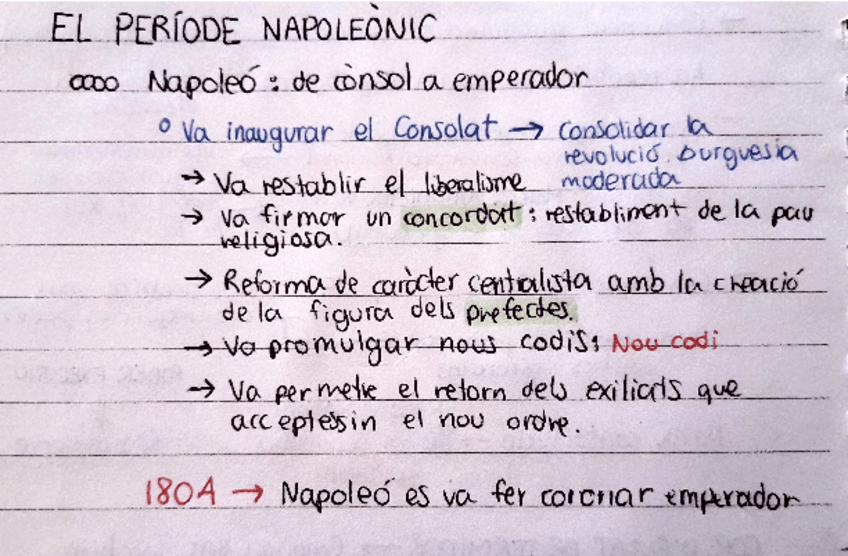 EL PERÍODE NAPOLEÒNIC
Napoleó: de cònsol a emperador
Va inaugurar el Consolat → consolidar la
revolució burguesia
→ Va restablir el liberalisme moderada
→ Va firmar un concordatt: restabliment de la pau
religiosa.
→ Reforma de caràcter centralista amb la creació
de la figura dels prefectes.
→ Va promulgar nous codis: Nou codi
→ Va permetre el retorn dels exiliats que
acceptessin el nou ordre.
1804 → Napoleó es va fer coronar emperador